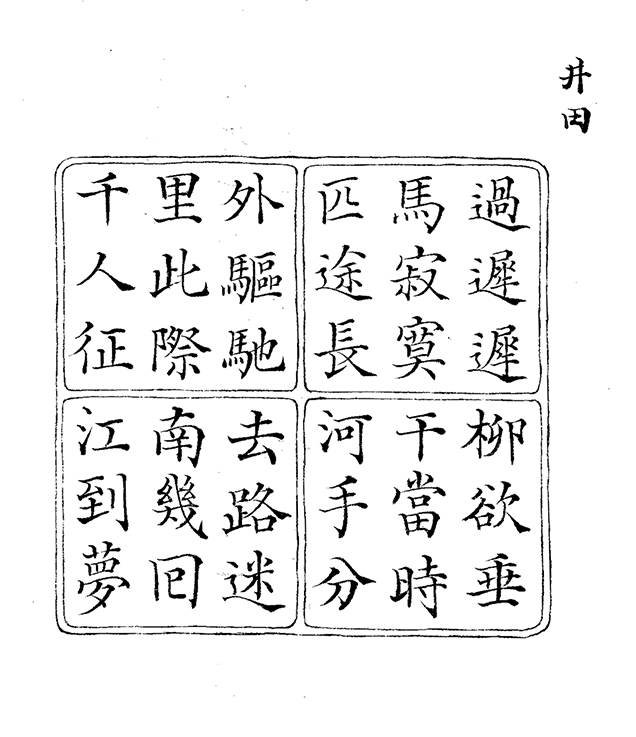 井田
過遲遲
馬寂寞
匹途長
柳欲垂
干當時
河手分
外驅馳
里此際
千人征
去路迷
南幾囘
江到夢